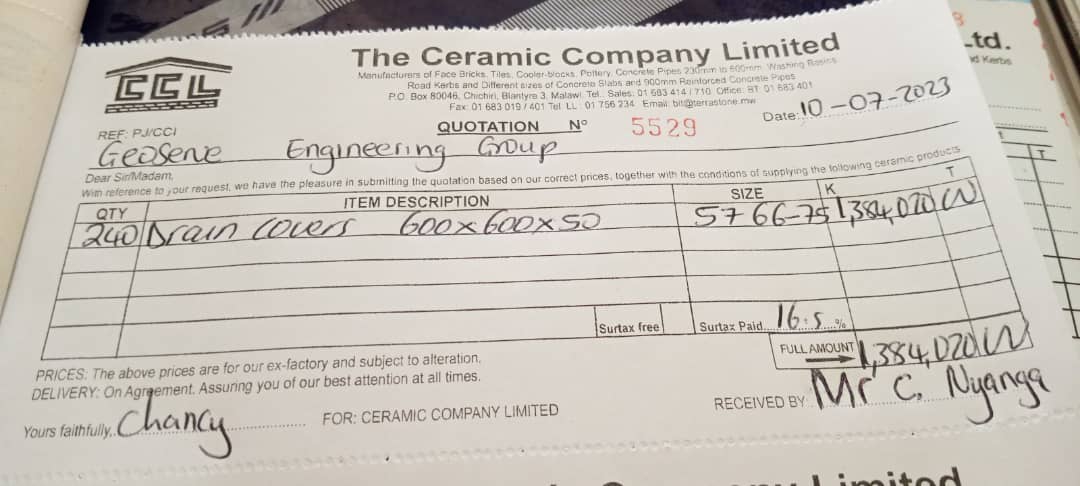 The Ceramic Company Limited
Manufacturers of Face Bricks, Tiles, Cooler-blocks, Pottery, Concrete Pipes 230mm to 600mm Washing Basins
Road Kerbs and Different sizes of Concrete Slabs and 900mm Reinforced Concrete Pipes
P.O. Box 80046, Chichiri, Blantyre 3, Malawi. Tel.: Sales: 01 683 414 / 710 Office: BT 01 683 401
Fax: 01 683 019 / 401 Tel LL : 01 756 234 Email: bit@terrastone.mw
CCL
REF: PJ/CCI
QUOTATION Nº 5529
Date: 10-07-2023
Geosene Engineering Group
Dear Sir/Madam,
With reference to your request, we have the pleasure in submitting the quotation based on our correct prices, together with the conditions of supplying the following ceramic products
QTY ITEM DESCRIPTION SIZE K T
240 Drain covers 600x600x50 5766-75 1,384,020
Surtax free Surtax Paid 16.5 %
FULL AMOUNT 1,384,020
PRICES: The above prices are for our ex-factory and subject to alteration.
DELIVERY: On Agreement. Assuring you of our best attention at all times.
RECEIVED BY Mr C. Nyanga
Yours faithfully, Chancy FOR: CERAMIC COMPANY LIMITED
Ltd.
Kerbs
T
Limited